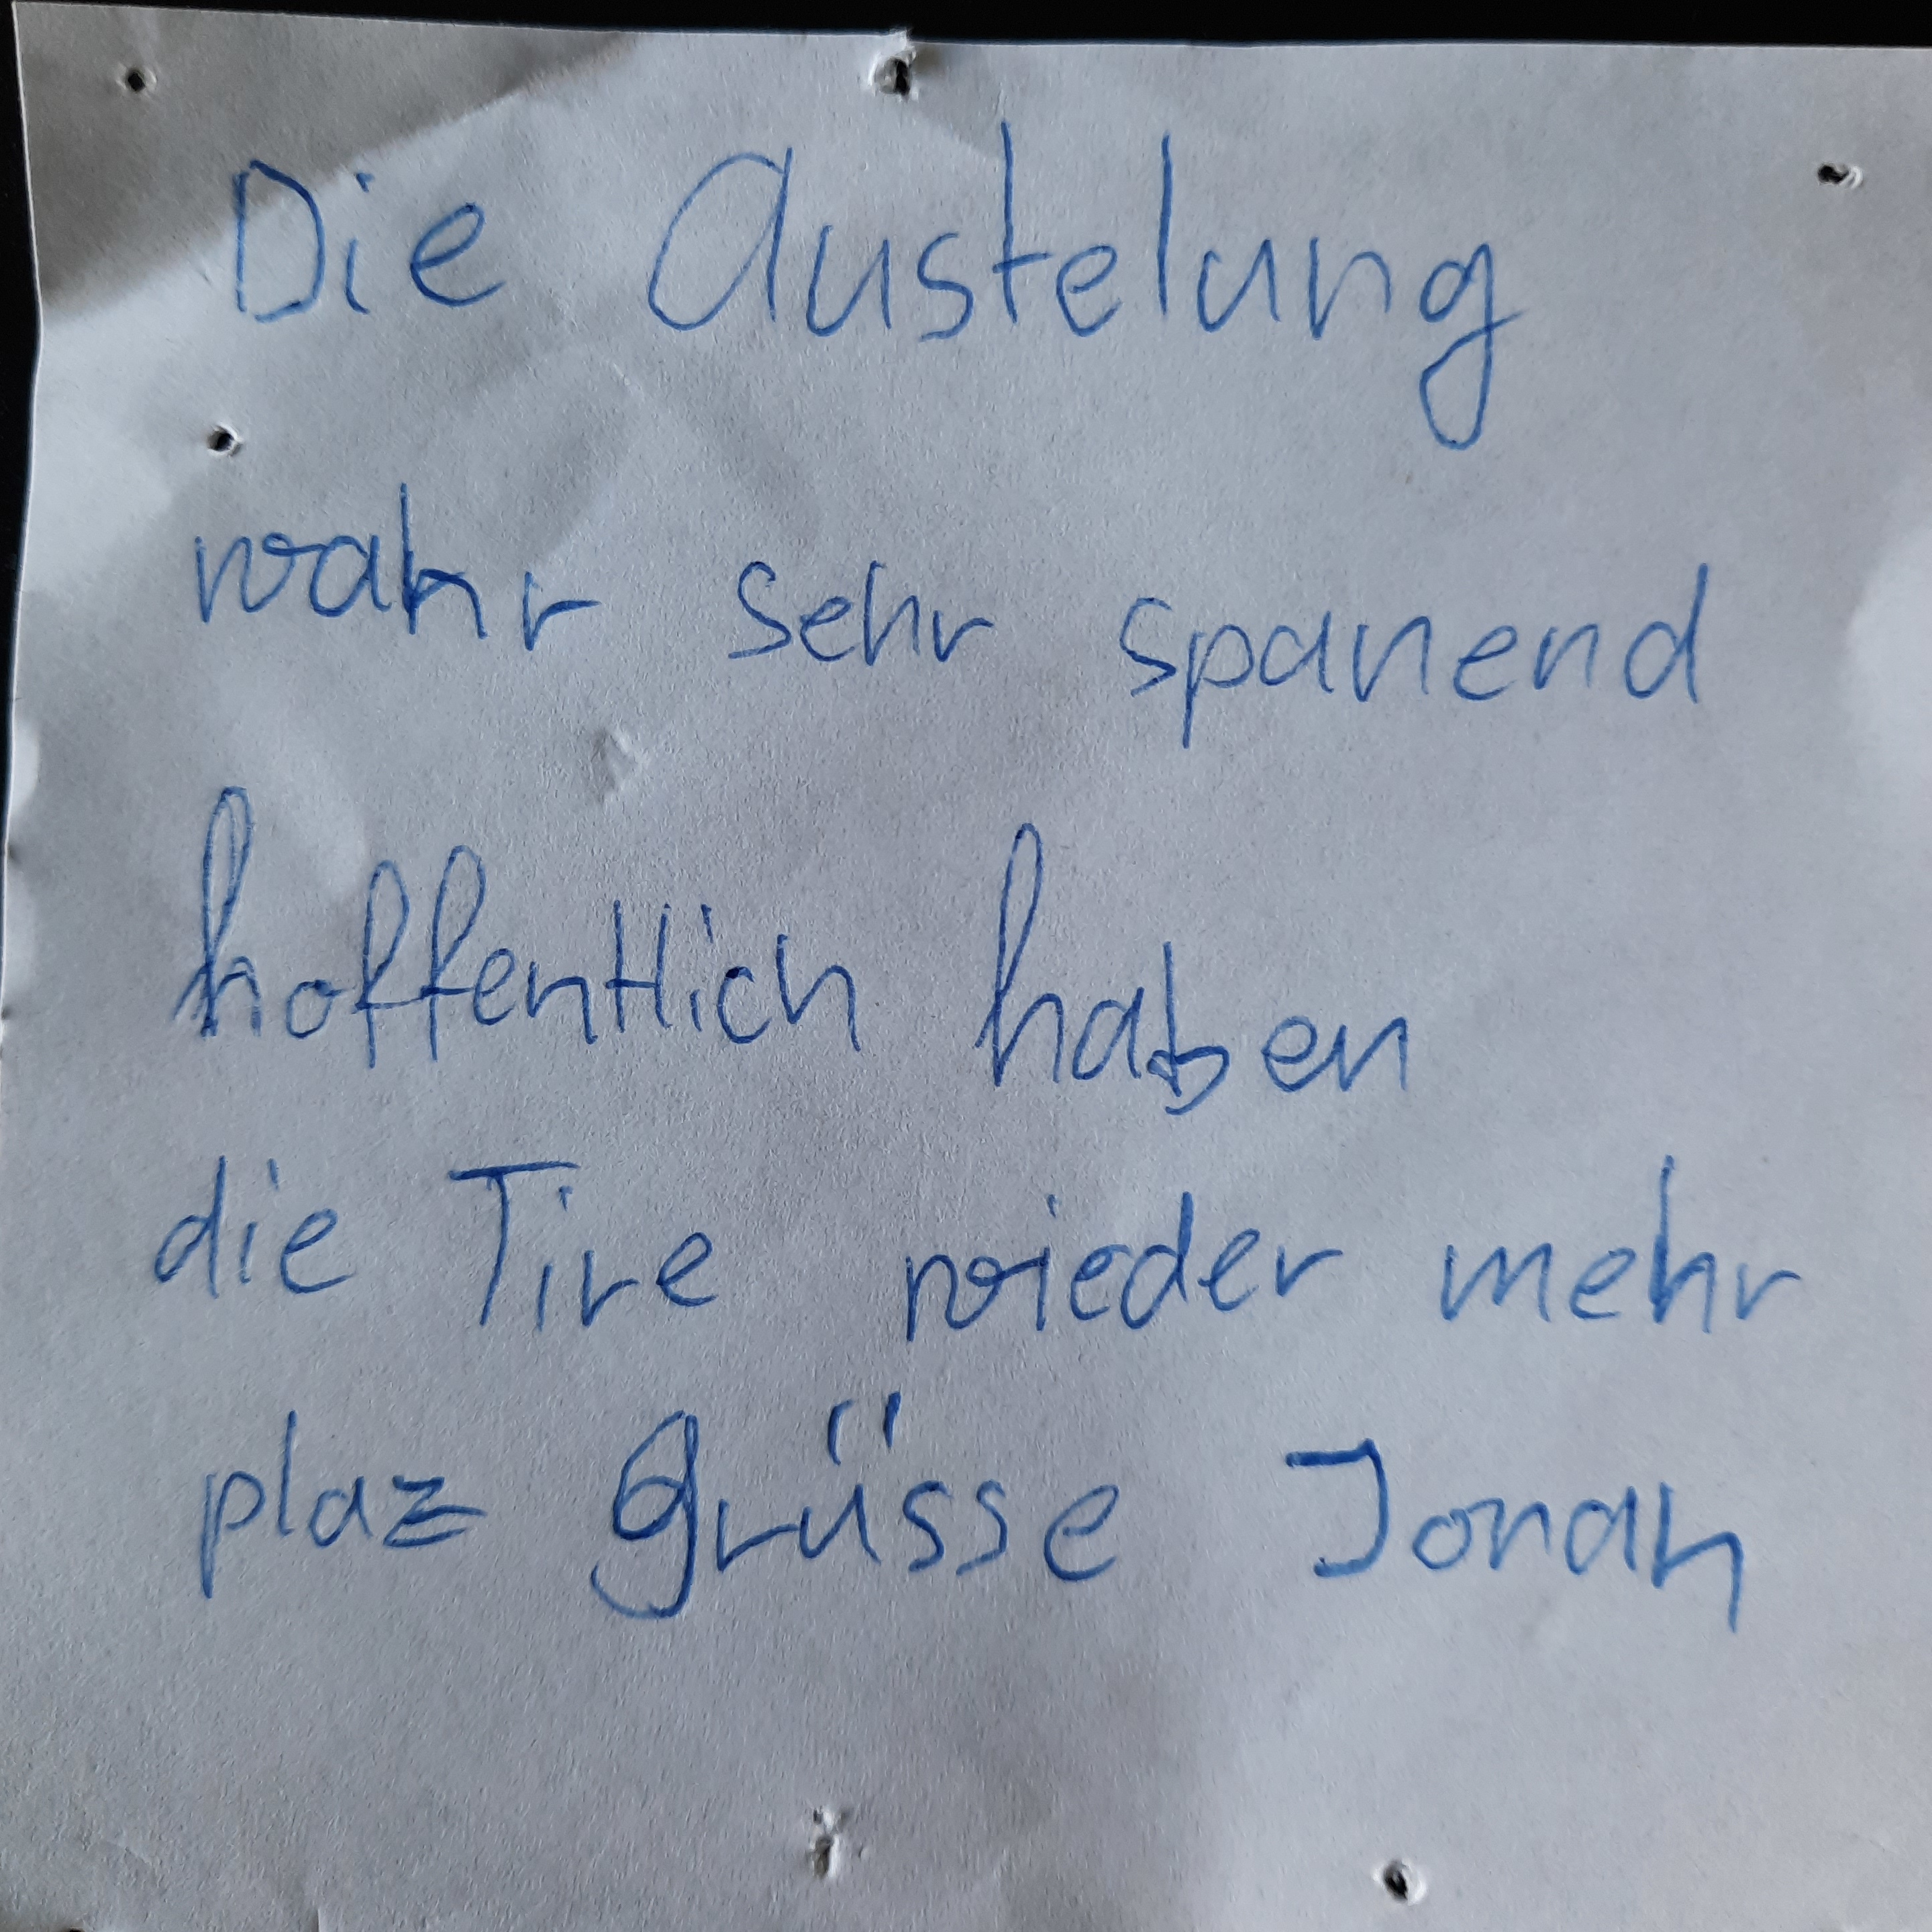 Die Austelung
wahr sehr spanend
hoffentlich haben
die Tire wieder mehr
plaz Grüsse Jonah